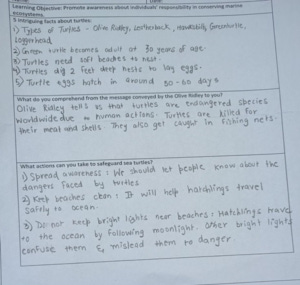 Learning Objective: Promote awareness about individuals' responsibility in conserving marine
ecosystems.
5 intriguing facts about turtles:
1) Types of Turtles - Olive Ridley, Leatherback, Hawksbill, Greenturtle,
Loggerhead
2) Green turtle becomes adult at 30 years of age.
3) Turtles need soft beaches to nest.
4) Turtles dig 2 feet deep nests to lay eggs.
5) Turtle eggs hatch in around 50 - 60 days
What do you comprehend from the message conveyed by the Olive Ridley to you?
Olive Ridley tells us that turtles are endangered species
worldwide due to human actions. Turtles are killed for
their meat and shells. They also get caught in fishing nets.
What actions can you take to safeguard sea turtles?
1) Spread awareness: We should let people know about the
dangers faced by turtles
2) Keep beaches clean: It will help hatchlings travel
safely to ocean.
3) Do not keep bright lights near beaches: Hatchlings travel
to the ocean by following moonlight. Other bright lights
confuse them & mislead them to danger